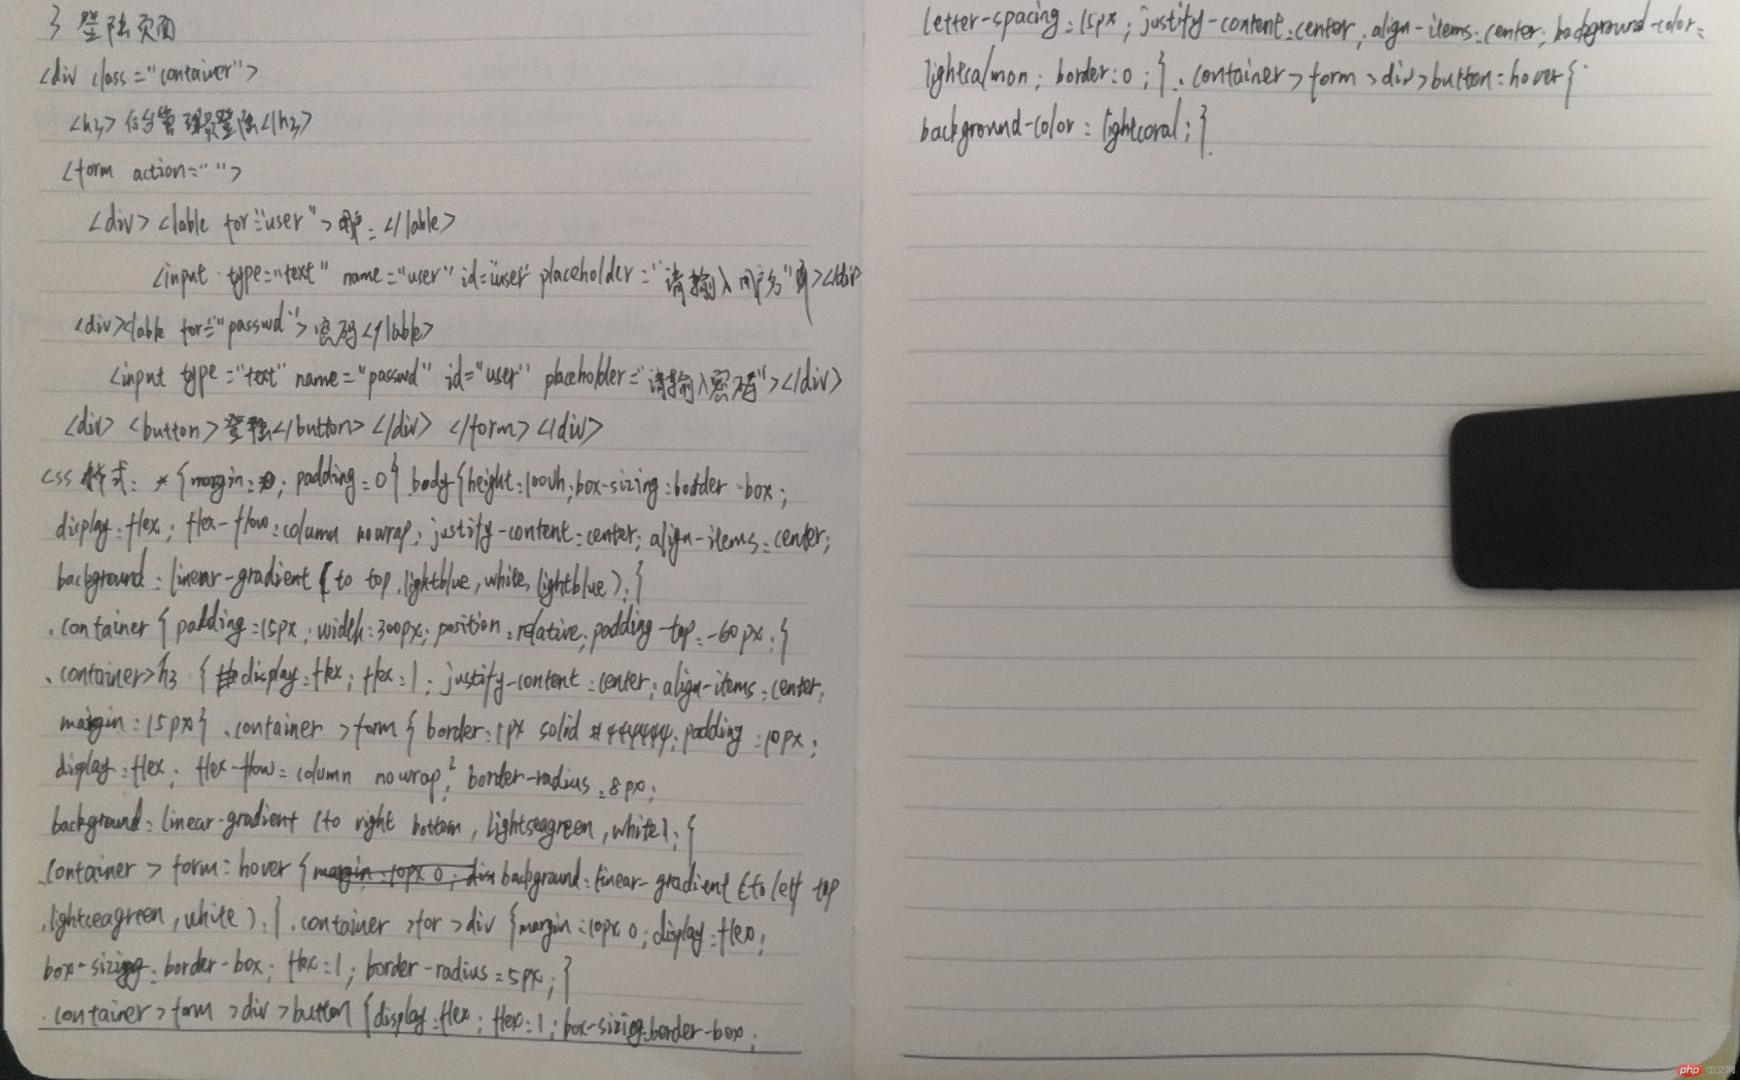 3 登陆页面
<div class="container">
<h3>后台管理员登陆</h3>
<form action="">
<div> <lable for="user">用户: </lable>
<input type="text" name="user" id="user" placeholder="请输入用户名"></div
<div><lable for="passwd">密码</lable>
<input type="text" name="passwd" id="user" placeholder="请输入密码"></div>
<div> <button>登陆</button> </div> </form> </div>
css 样式: * {margin:0; padding:0} body{height:100vh;box-sizing:border-box;
display:flex; flex-flow:column nowrap; justify-content:center; align-items:center;
background:linear-gradient (to top,lightblue,white,lightblue);}
.container {padding:15px; width:300px; position:relative; padding-top:-60px;}
.container>h3 {display:flex; flex:1; justify-content:center; align-items:center;
margin:15px} .container >form { border:1px solid #444444; padding:10px;
display:flex; flex-flow:column nowrap; border-radius:8px;
background:linear-gradient (to right bottom, lightseagreen, white);}
.container > form:hover { background:linear-gradient (to left top
,lightseagreen, white);} .container >for >div {margin:10px 0; display:flex;
box-sizing:border-box; flex:1; border-radius:5px;}
.container>form >div >button {display:flex; flex:1; box-sizing:border-box;
letter-spacing:15px; justify-content:center; align-items:center; background-color:
lightsalmon; border:0;} .container>form >div>button:hover{
background-color: lightcoral;}
php 中文网